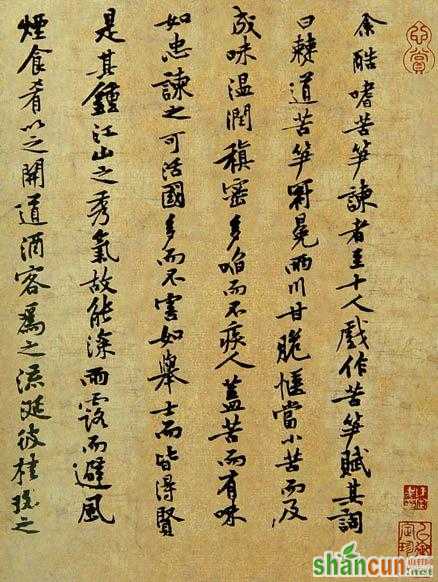 余酷嗜苦笋諫者至十人戲作苦笋賦其詞
曰僰道苦笋冠冕兩川甘脆愜當小苦而及
成味温潤稹密多啗而不疾人蓋苦而有味
如忠諫之可活國多而不害如舉士而皆得賢
是其鍾江山之秀氣故能深雨露而避風
煙食肴以之開道酒客爲之流涎彼桂玫之
shancun
.net